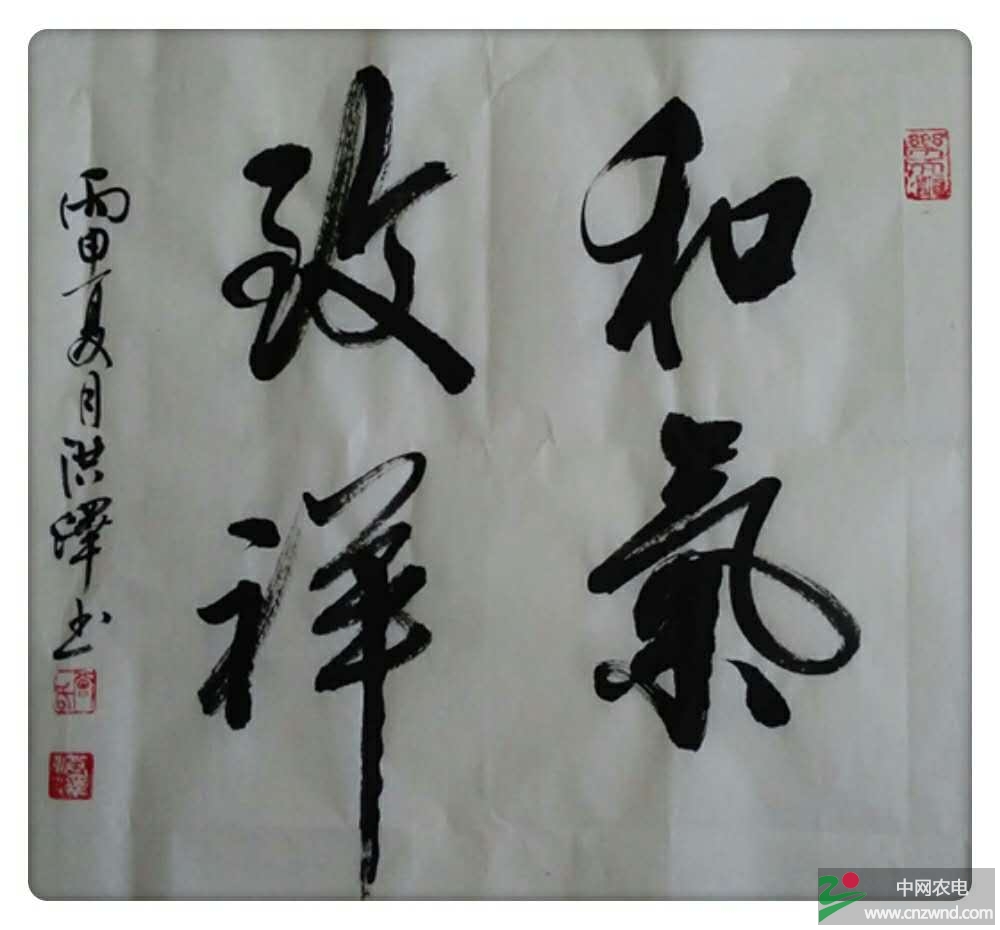 和氣
致祥
丙申夏月洪澤书
中网农电
www.cnzwnd.com